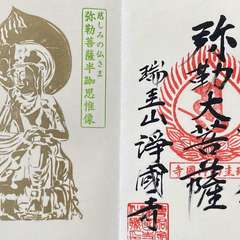 慈しみの仏さま
弥勒菩薩半跏思惟像
弥勒大菩薩
瑞圭山淨國寺